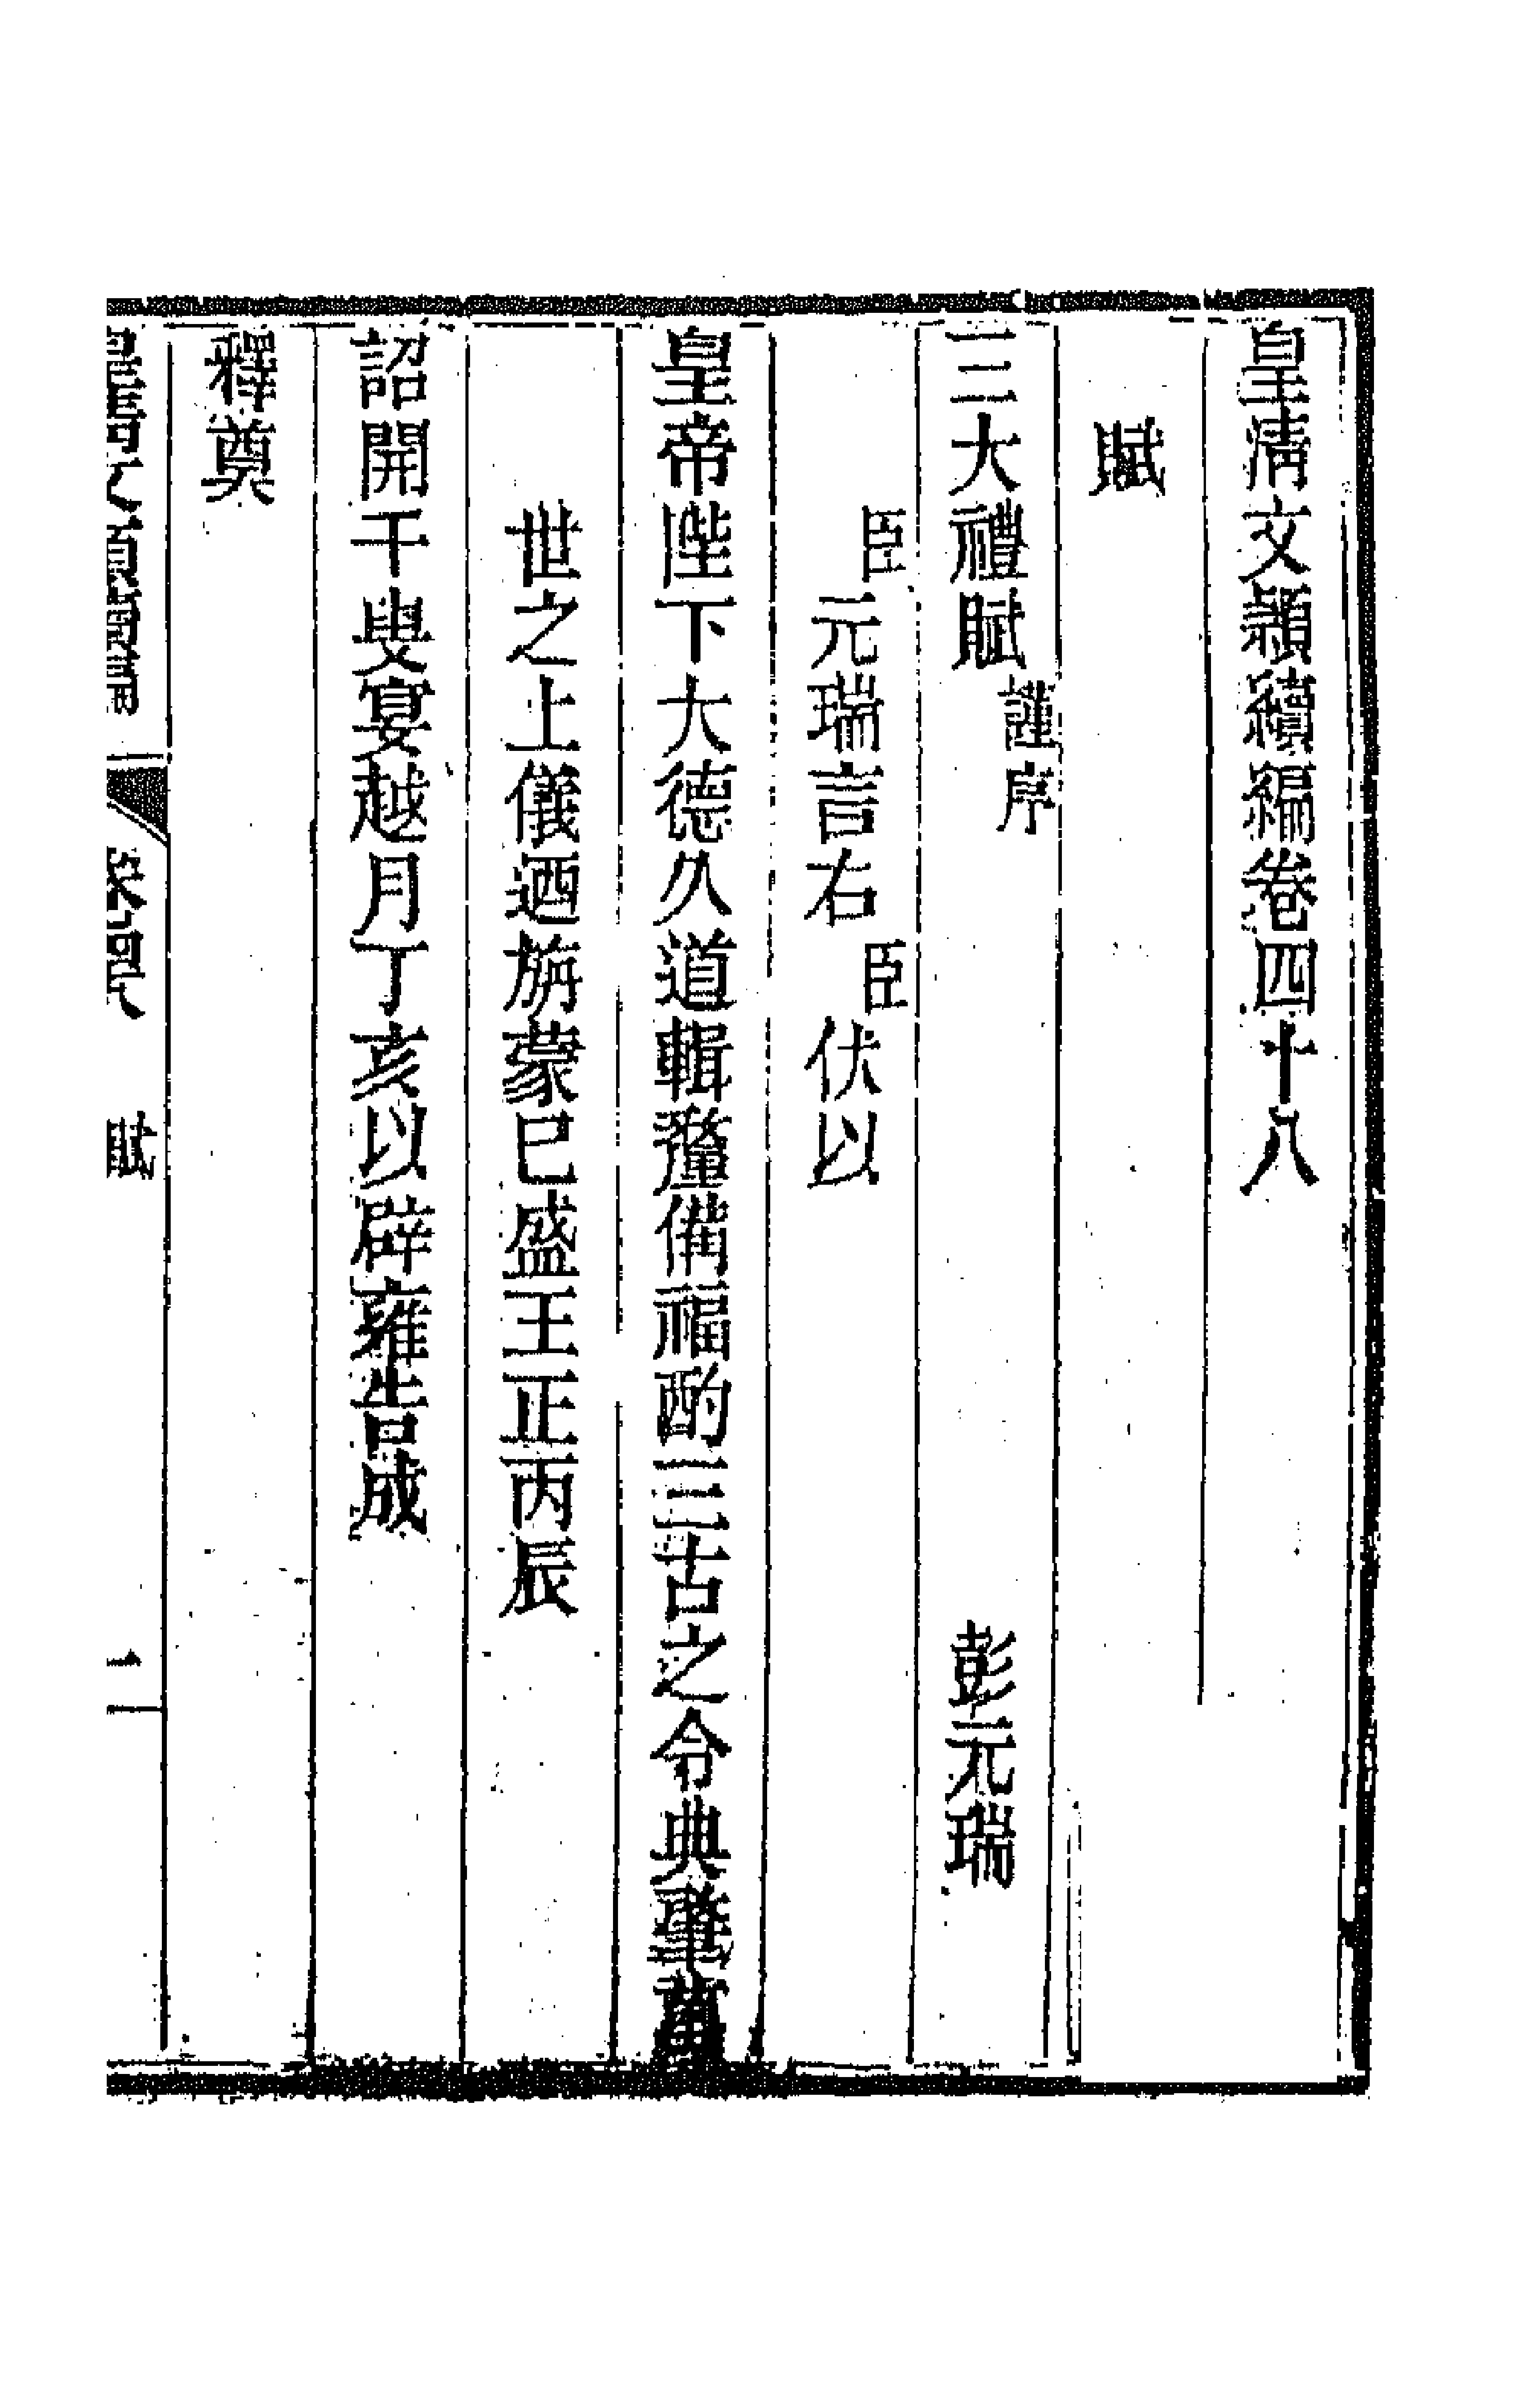 皇清文穎續編卷四十八
賦
三大禮賦謹序 彭元瑞
臣元瑞言右臣伏以
皇帝陛下大德久道輯釐備福酌三古之令典肇萬
世之上儀迺旃蒙巳盛王正丙辰
詔開千叟宴越月丁亥以辟雍告成
釋奠
賦